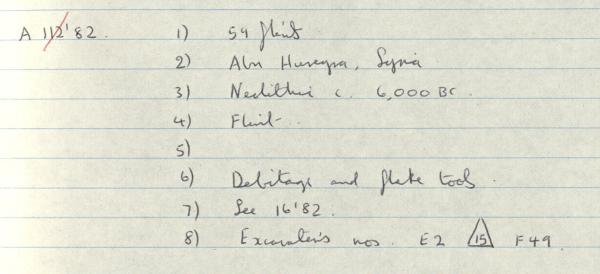 A 112'82. 1) 59 flint
2) Abu Hureyra, Syria
3) Neolithic c. 6,000 BC.
4) Flint.
5)
6) Debitage and flake tools.
7) See 16'82.
8) Excavator's nos. E2 15 F49.